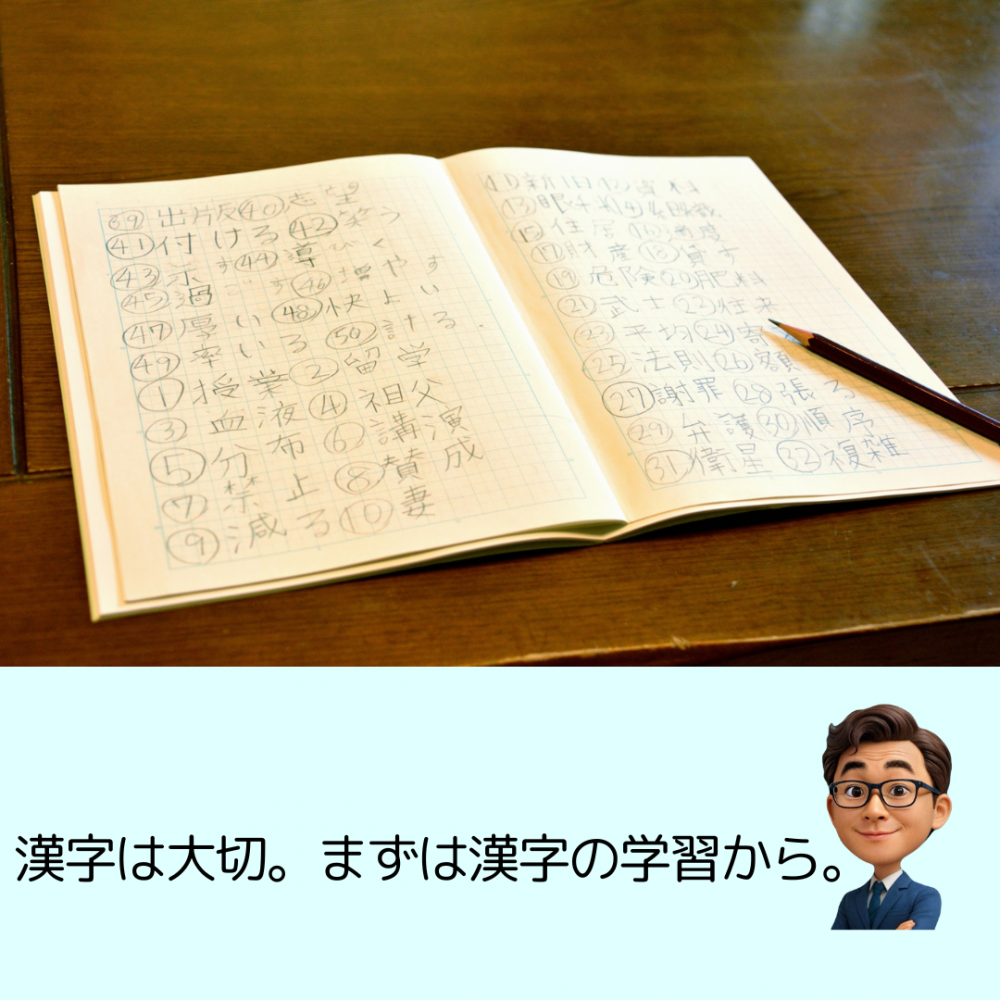 ㊴出版㊵志望
㊶付ける㊷笑う
㊸示す㊹導びく
㊺過ごす㊻増やす
㊼厚い㊽快よい
㊾率いる㊿計る
①授業②留学
③血液④祖父
⑤分布⑥講演
⑦禁止⑧賛成
⑨減る⑩妻
新旧 資料
⑬眼
⑮住居⑯
⑰財産⑱貸す
⑲危険⑳肥料
㉑武士㉒往来
㉓平均㉔寄
㉕法則㉖額
㉗謝罪㉘張る
㉙弁護㉚順序
㉛衛星㉜複雑
漢字は大切。まずは漢字の学習から。